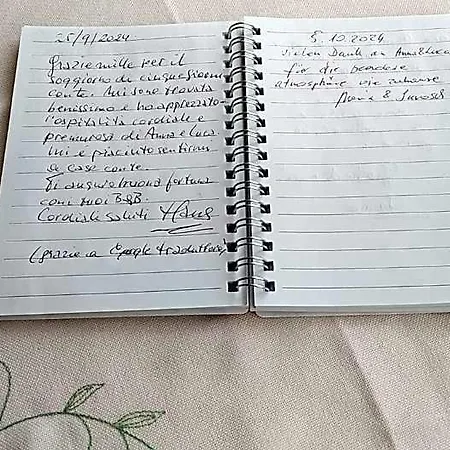 25/9/2024
Grazie mille per il
soggiorno di cinque giorni
con te. Mi sono trovata
benissimo e ho apprezzato
l'ospitalità cordiale e
premurosa di Anna e Luca.
Mi è piaciuto sentirmi
a casa con te.
Ti auguro buona fortuna
con i tuoi B&B.
Cordiale saluti
(grazie a Google traduttore)
5.10.2024
Vielen Dank an Anna & Luca
für die besondere
atmosphäre wie zuhause